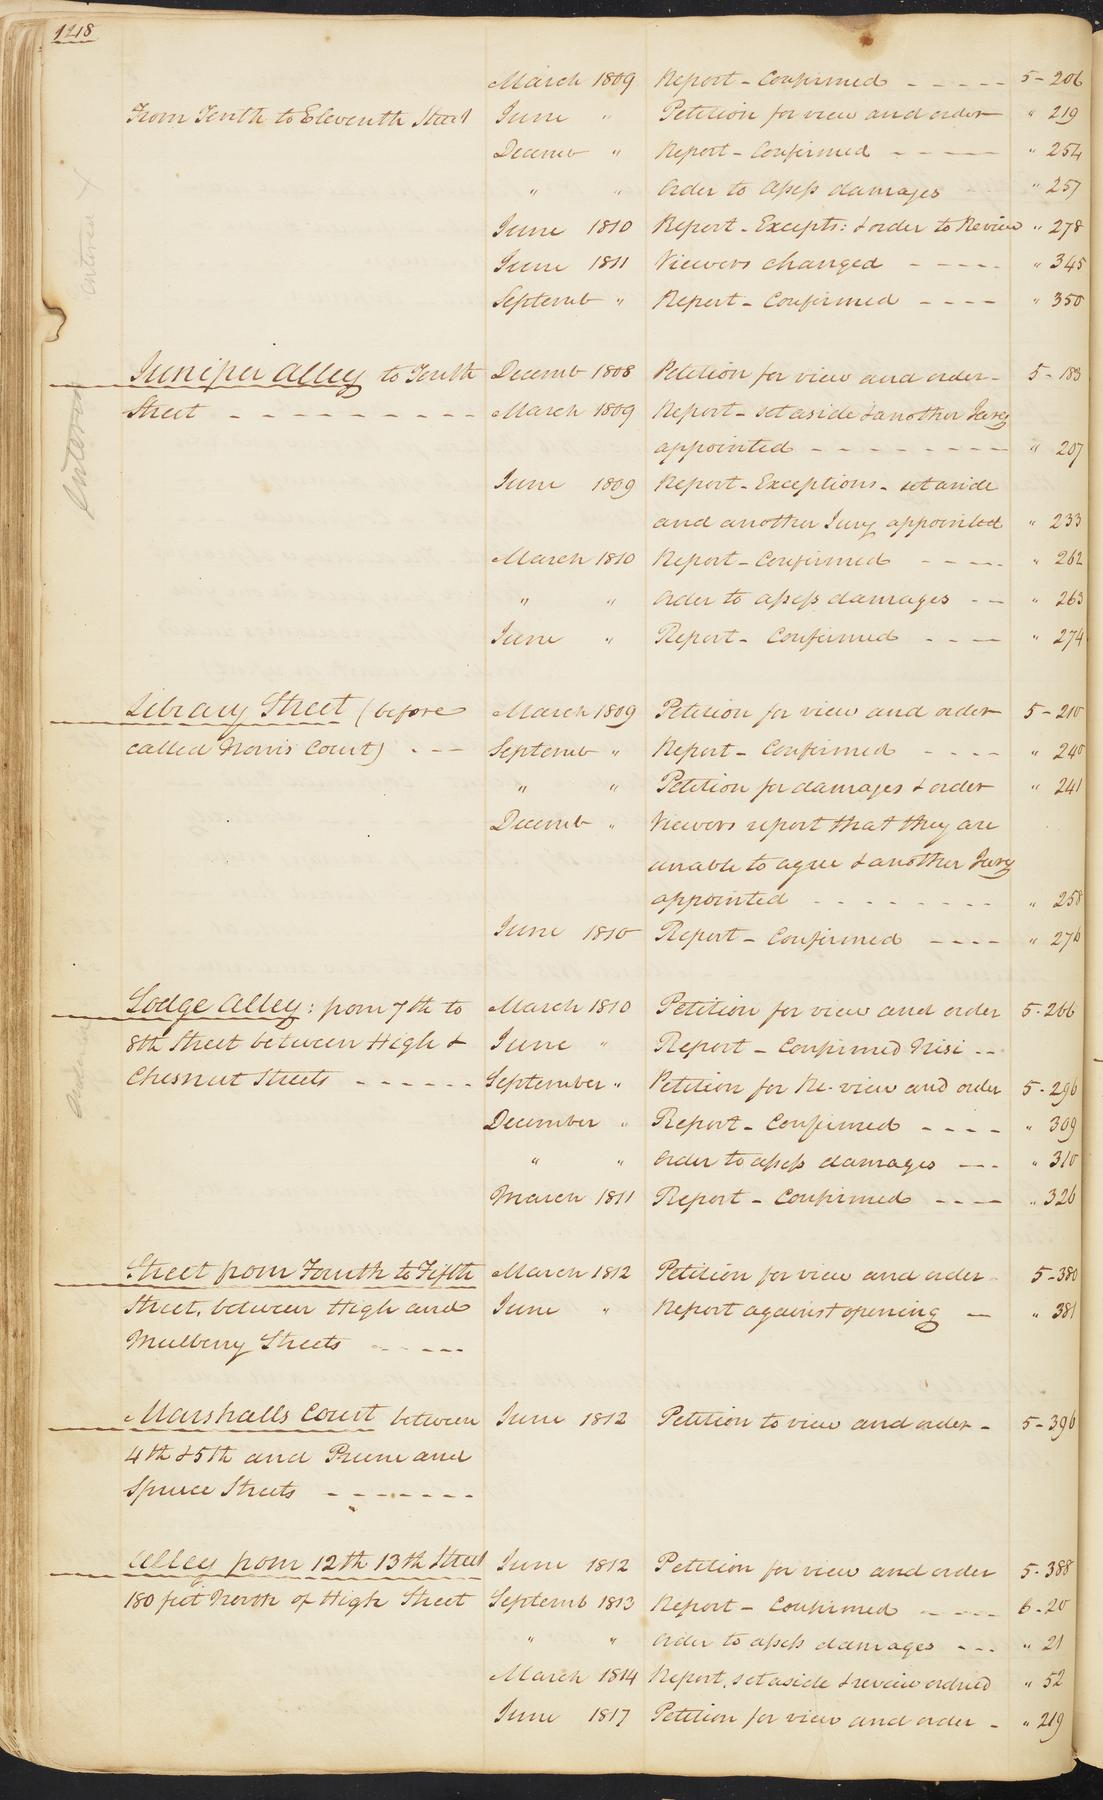 1218
March 1809 Report - Confirmed - - - - - 5 - 206
From Tenth to Eleventh Street June " Petition for view and order " 219
Decemb " Report - Confirmed - - - - - " 254
" " Order to assess damages " 257
June 1810 Report - Excepts: & order to Review " 278
June 1811 Viewers changed - - - - " 345
Septemb " Report - Confirmed - - - - " 350
Juniper Alley to Tenth Decemb 1808 Petition for view and order - 5 - 183
Street - - - - - - - - - March 1809 Report - set aside & another Jury
appointed - - - - - - - - " 207
June 1809 Report - Exceptions - set aside
and another Jury appointed " 233
March 1810 Report - Confirmed - - - - " 262
" " Order to assess damages - - " 263
June " Report - Confirmed - - - - " 274
Library Street (before March 1809 Petition for view and order 5 - 210
called Norris Court) - - - Septemb " Report - Confirmed - - - - " 240
" " Petition for damages & order " 241
Decemb " Viewers report that they are
unable to agree & another Jury
appointed - - - - - - - - " 258
June 1810 Report - Confirmed - - - - " 276
Lodge Alley: from 7th to March 1810 Petition for view and order 5 - 266
8th Street between High & June " Report - Confirmed Nisi - -
Chesnut Streets - - - - - - September " Petition for Re-view and order 5 - 296
December " Report - Confirmed - - - - " 309
" " Order to assess damages - - - " 310
March 1811 Report - Confirmed - - - - " 326
Street from Fourth to Fifth March 1812 Petition for view and order 5 - 380
Street, between High and June " Report against opening - " 381
Mulberry Streets - - - - -
Marshalls Court between June 1812 Petition to view and order - 5 - 396
4th & 5th and Prune and
Spruce Streets - - - - - - -
Alley from 12th 13th Street June 1812 Petition for view and order 5 - 388
180 feet North of High Street Septemb 1813 Report - Confirmed - - - - - 6 - 20
" " Order to assess damages - - - " 21
March 1814 Report, set aside & review ordered " 52
June 1817 Petition for view and order - " 219
Entered
Entered